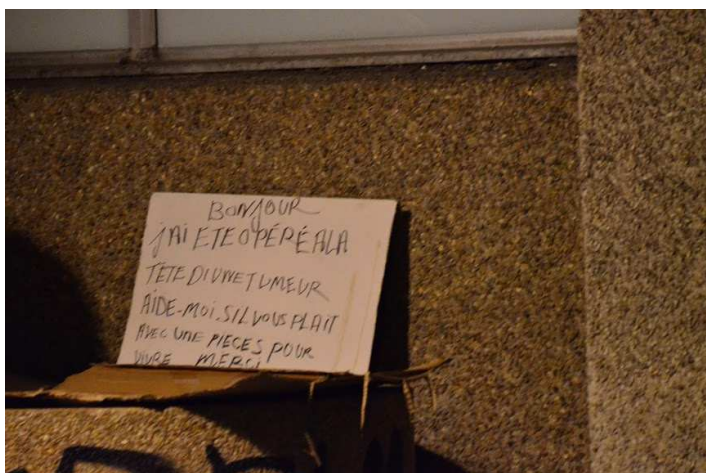 BONJOUR
jAI ETE OPÉRÉ A LA
TÊTE D'UNE TUMEUR
AIDE-MOI. SIL VOUS PLAIT
AVEC UNE PIECES POUR
VIVRE MERCI